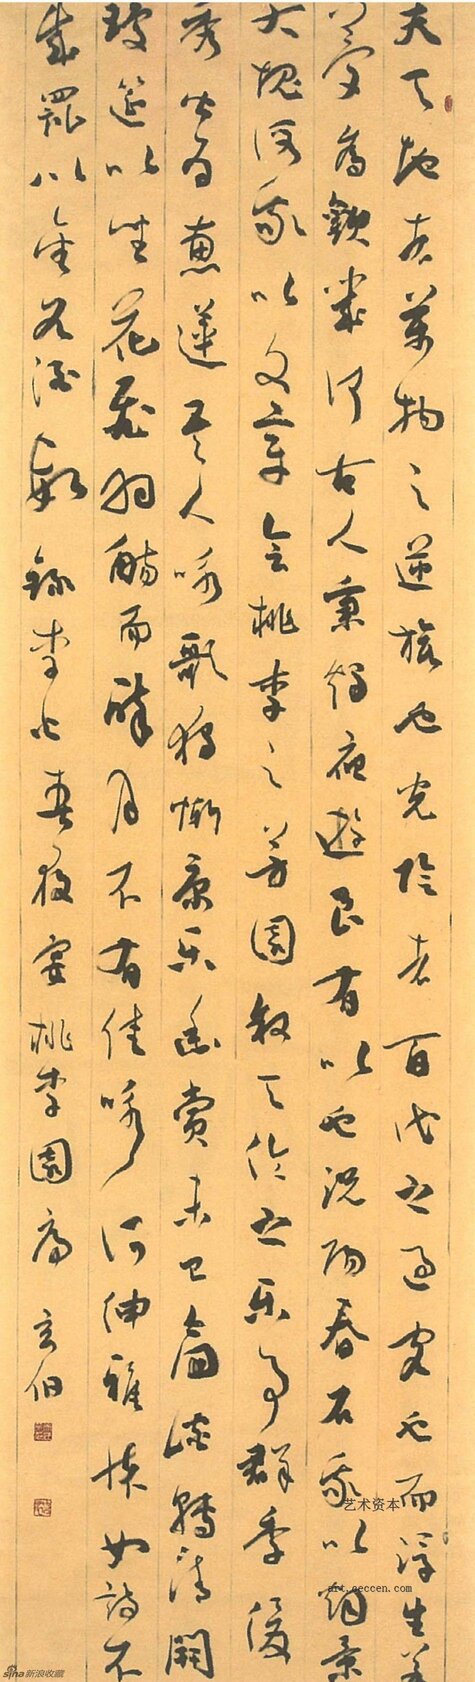 夫天地者萬物之逆旅也光陰者百代之過客也而浮生若
夢為歡幾何古人秉燭夜遊良有以也況陽春召我以烟景
大塊假我以文章會桃李之芳園敘天倫之樂事群季俊
秀皆為惠連吾人咏歌獨慚康樂幽賞未已高談轉清開
瓊筵以坐花飛羽觴而醉月不有佳咏何伸雅懷如詩不
成罰以金谷酒數 錄李白春夜宴桃李園序 玄伯
艺术资本
art.ceccen.com
sina新浪收藏